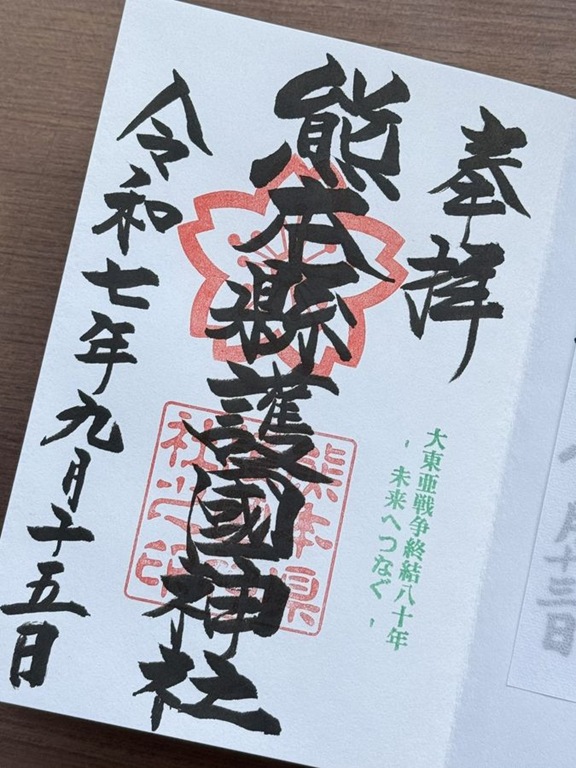 奉拝
大東亜戦争終結八十年
- 未来へつなぐ -
熊本縣護國神社
熊本県
社之印
令和七年九月十五日
月十三日